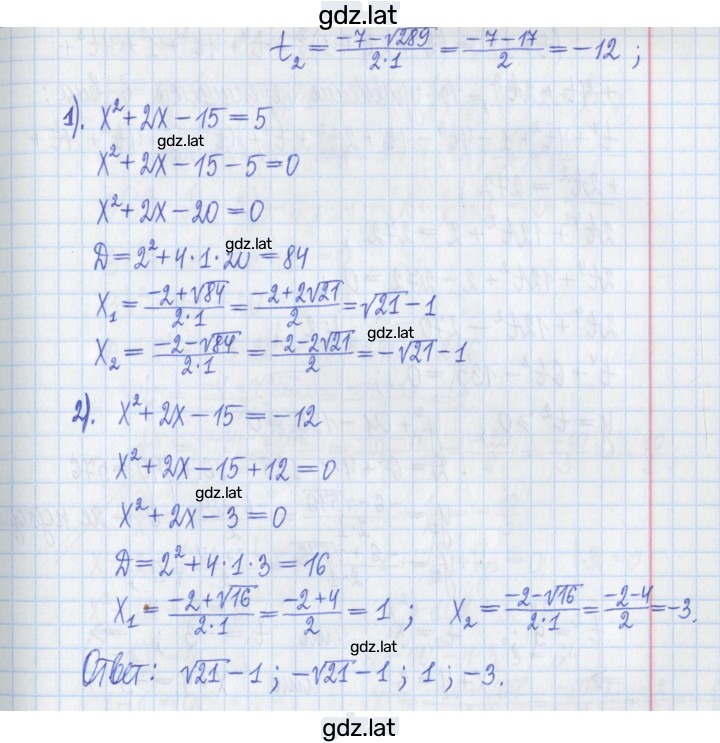 gdz.lat
t₂ = (-7-√289)/(2·1) = (-7-17)/2 = -12 ;
1). x²+2x-15=5
gdz.lat
x²+2x-15-5=0
x²+2x-20=0
gdz.lat
D=2²+4·1·20=84
x₁ = (-2+√84)/(2·1) = (-2+2√21)/2 = √21-1
gdz.lat
x₂ = (-2-√84)/(2·1) = (-2-2√21)/2 = -√21-1
2). x²+2x-15=-12
x²+2x-15+12=0
gdz.lat
x²+2x-3=0
D=2²+4·1·3=16
x₁ = (-2+√16)/(2·1) = (-2+4)/2 = 1 ; x₂ = (-2-√16)/(2·1) = (-2-4)/2 = -3.
gdz.lat
Ответ: √21-1 ; -√21-1 ; 1 ; -3.
gdz.lat